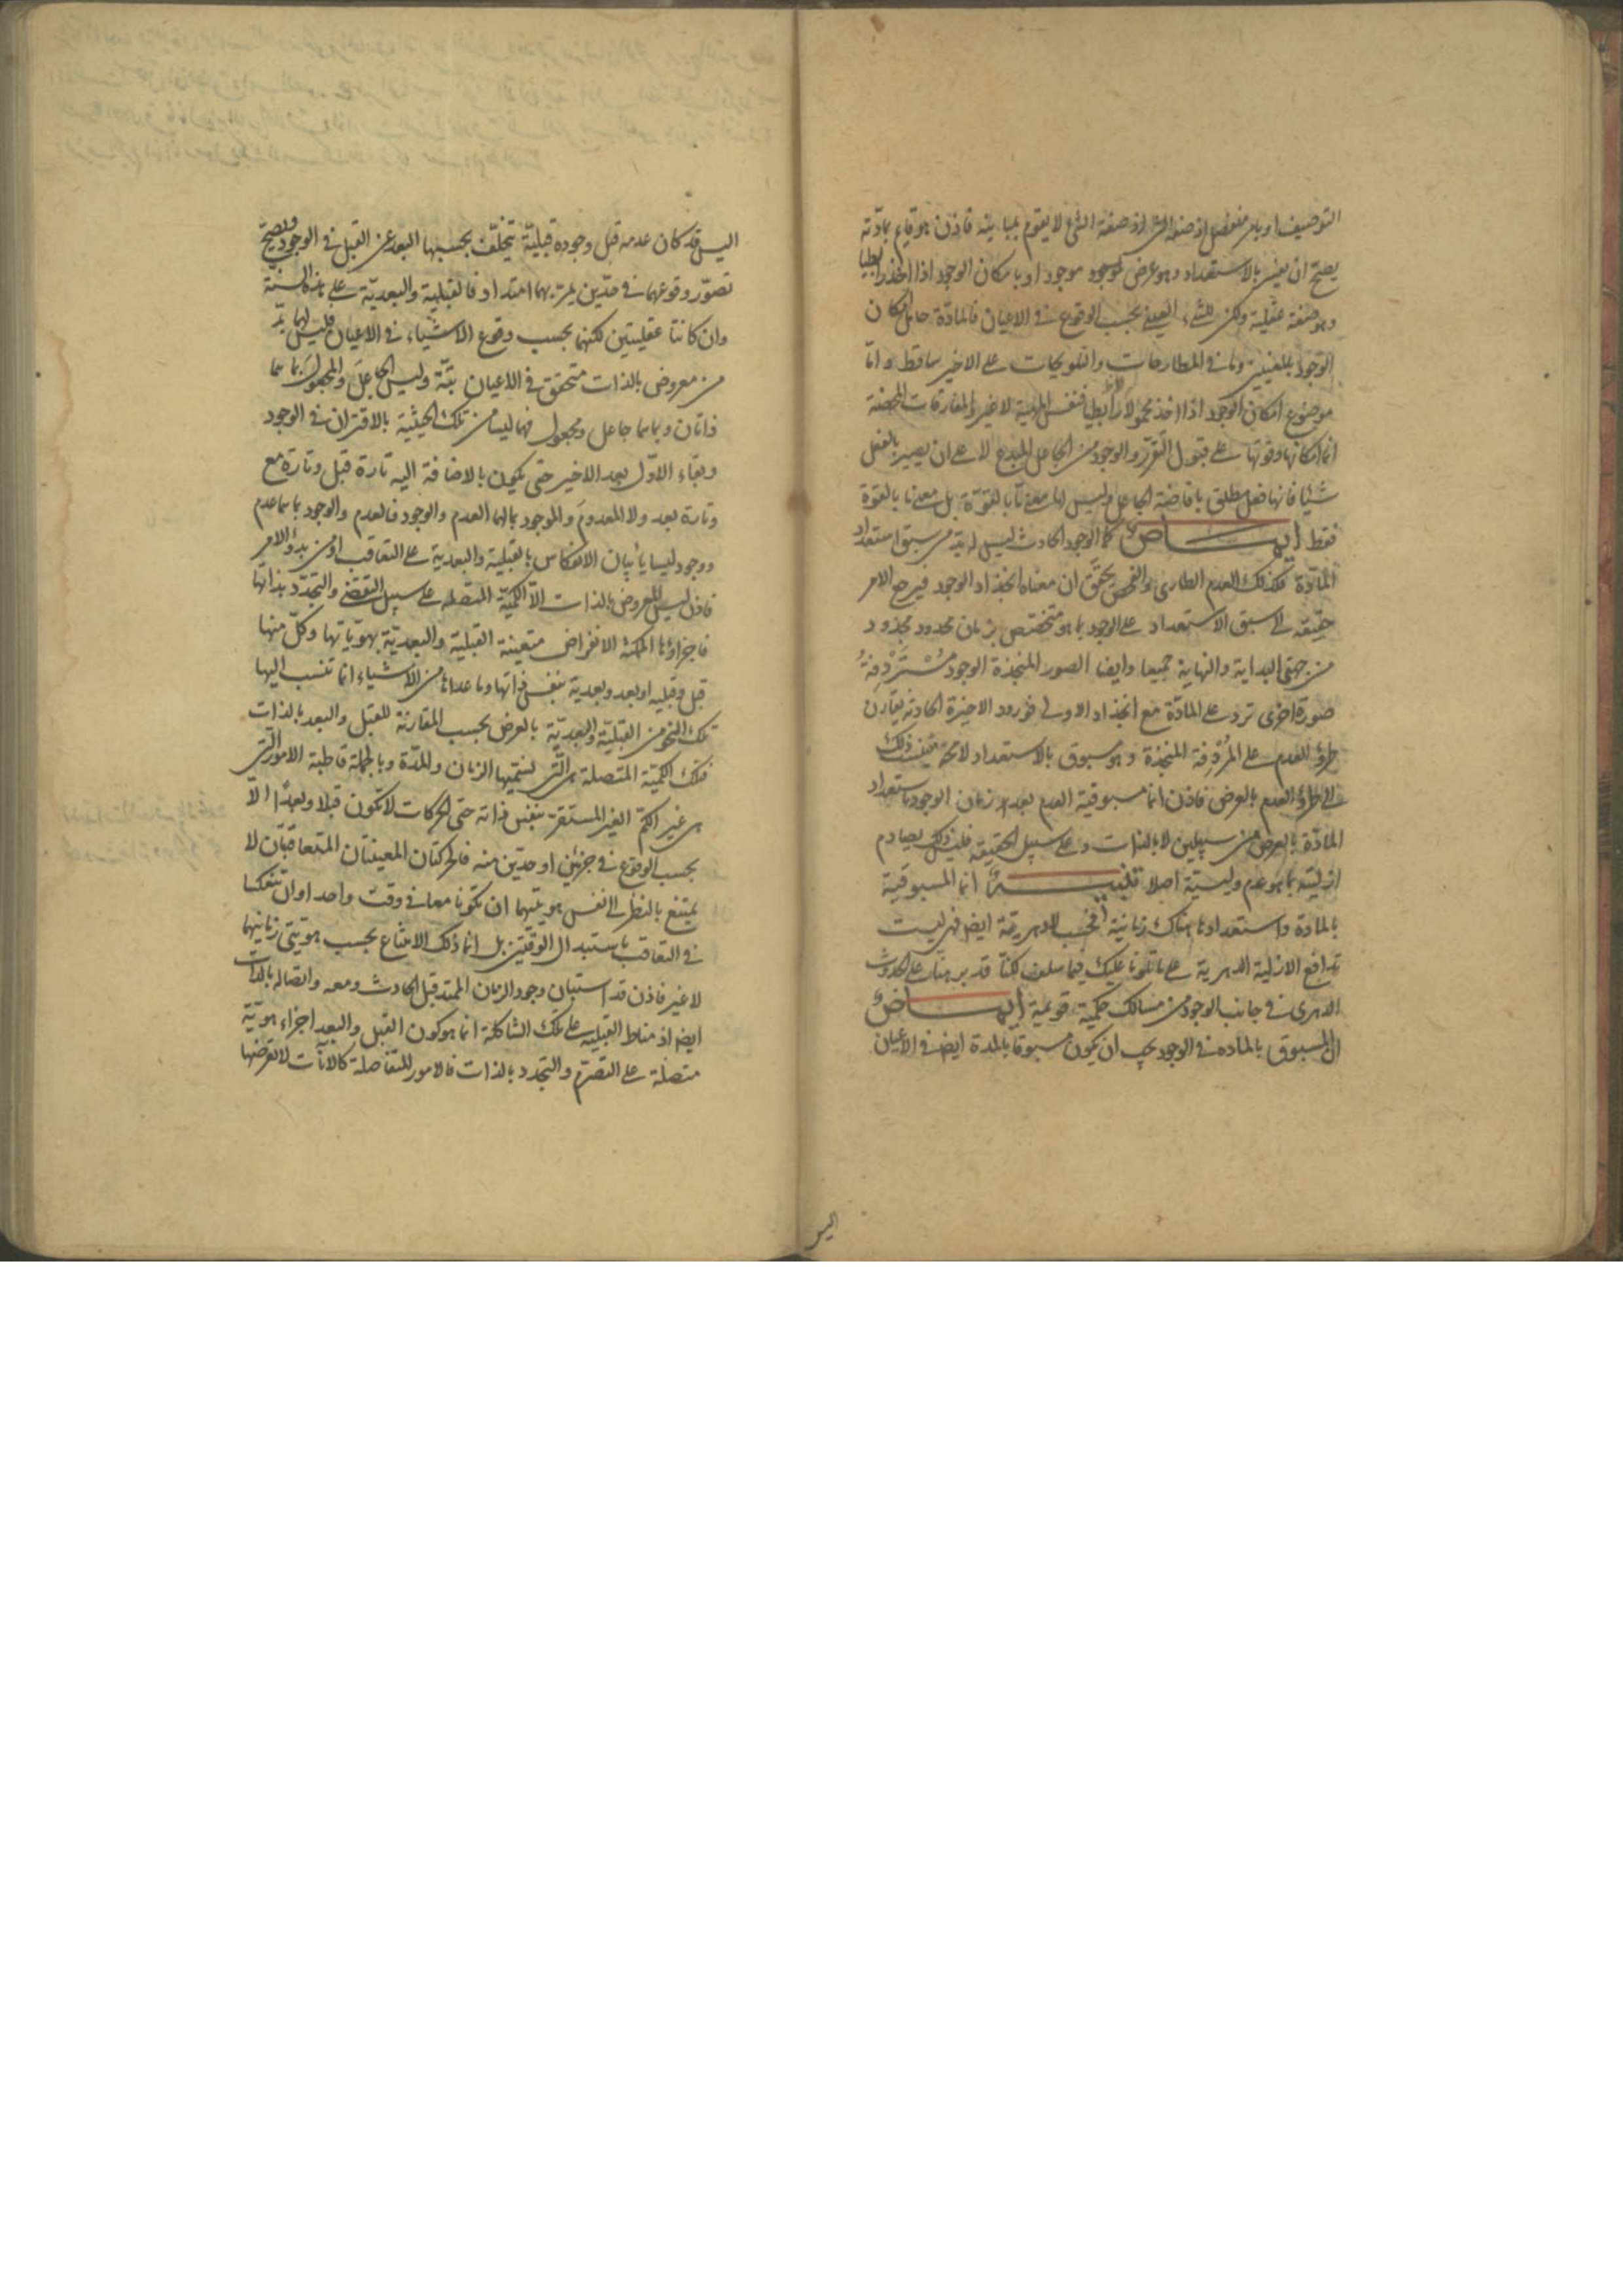 التوصيف او بامر منفصل اذ صفة الشئ لا يقوم بمباينه فاذن هو قايم بمادته
يصح ان يفسر بالاستعداد وهو عرض موجود او بامكان الوجود اذا اخذ رابطيا
وهو صفة عقلية ولكن للشئ العينى بحسب الوقوع فى الاعيان فالمادة حامل امكان
الوجود بالمعنيين وما فى المطارحات والتلويحات على الاخير ساقط واما
موضوع امكان الوجود اذا اخذ محمولا لا رابطيا فنفس المهية لا غير والمفارقات المحضة
انما امكانها وقوتها على قبول التقرر والوجود من الجاعل المبدع لا على ان يصير بالفعل
شيئا فانها فعل مطلق بافاضة الجاعل وليس لها معنى ما بالقوة بل معنى ما بالقوة
فقط ايماض كما الوجود الحادث ليس له بد من سبق استعداد
المادة فكذلك العدم الطارى والفحص يحقق ان معناه انجذاذ الوجود فيرجع الامر
حقيقة الى سبق الاستعداد على الوجود بما هو متخصص بزمان محدود مجذوذ
من جهتى البداية والنهاية جميعا وايضا الصور المنجذة الوجود مستردفة
صورة اخرى ترد على المادة مع انجذاذ الاولى فورود الاخيرة الحادثة يقارن
طروّ العدم على المردفة المنجذة وهو مسبوق بالاستعداد لا محة فينسب ذلك
الى طروّ العدم بالعرض فاذن انما مسبوقية العدم بعد زمان الوجود باستعداد
المادة بالعرض من سبيلين لا بالذات وعلى سبيل الحقيقة فليس ذلك يصادم
ازليته بما هو عدم وليسية اصلا انما المسبوقية
بالمادة واستعدادها هناك زمانية فحسب ايض فهى ليست
تدافع الازلية الدهرية على ما تلونا عليك فيما سلف لكنا قد برهنا على الحدوث
الدهرى فى جانب الوجود من مسالك حكمية قويمة ايماض
ان المسبوق بالماده فى الوجود يجب ان يكون مسبوقا بالمدة ايض فى الاعيان
اليس
اليس قد كان عدمه قبل وجوده قبلية يتخلف بحسبها البعد عن القبل فى الوجود ويصح
تصور وقوعهما فى حدين يمر بهما امتداد فالقبلية والبعدية على هذه السنة
وان كانتا عقليتين لكنهما بحسب وقوع الاشياء فى الاعيان فليس لهما بد
من معروض بالذات متحقق فى الاعيان بتة وليس الجاعل والمجعول بما هما
ذاتان وبما هما جاعل ومجعول فهما ليسا من تلك الحيثية بالاقتران فى الوجود
وبقاء الاول بعد الاخير حتى يكون بالاضافة اليه تارة قبل وتارة مع
وتارة بعد ولا المعدوم والموجود بالهما العدم والوجود فالعدم والوجود بما هما عدم
ووجود ليسا يأبيان الانعكاس بالقبلية والبعدية على التعاقب او من بدؤ الامر
فاذن ليس المعروض بالذات الا الكمية المتصله على سبيل التقضى والتجدد بذاتها
فاجزاؤها الممكنة الانفراض متعينة القبلية والبعدية بهوياتها وكل منها
قبل وقبليه او بعد وبعدية بنفس ذاتها وما عداها من الاشياء انما تنسب اليها
تلك النحو من القبلية والبعدية بالعرض بحسب المقارنة للقبل والبعد بالذات
فتلك الكمية المتصلة هى التى نسميها الزمان والمدة وبالجملة قاطبة الامور التى
هى غير الكم الغير المستقر بنفس ذاته حتى الحركات لا تكون قبلا وبعدا الا
بحسب الوقوع فى جزئين او حدين منه فالحركتان المعينتان المتعاقبتان لا
يمتنع بالنظر الى نفس هويتيهما ان تكونا معا فى وقت واحد او ان تنعكسا
فى التعاقب باستبدال الوقتين بل انما ذلك الامتناع بحسب هويتى زمانيهما
لا غير فاذن قد استبان وجود الزمان الممتد قبل الحادث ومعه واتصاله بالذات
ايض اذ مناط القبلية على تلك الشاكلة انما هو كون القبل والبعد اجزاء هوية
متصلة على التصرم والتجدد بالذات فالامور المتفاصلة كالآنات لا تعرضها